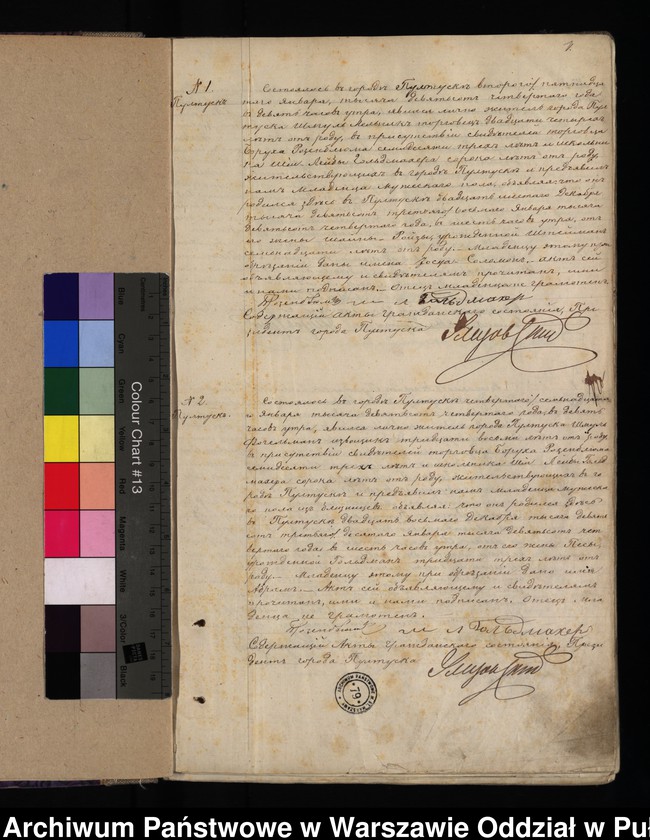 1
№ 1.
Пултускъ
Состоялось въ городѣ Пултускѣ второго/пятнадца
таго Января, тысяча девятьсотъ четвертаго года
въ девять часовъ утра, явился лично житель города Пул
туска Шмуль торговецъ двадцати четырехъ
лѣтъ отъ роду, въ присутствіи свидѣтелей торговца
Сруха Розенблюма семидесяти трехъ лѣтъ и школьни
ка Шіи Лейбы Гольдмахера сорока лѣтъ отъ роду,
жительствующихъ въ городѣ Пултускѣ и предъявилъ
намъ Младенца мужескаго пола, объявляя что онъ
родился здѣсь въ Пултускѣ двадцать шестого Декабря
тысяча девятьсотъ третьяго/восьмого Января тысяча
девятьсотъ четвертаго года, въ шесть часовъ утра, отъ
его жены Ройзы, урожденной
семнадцати лѣтъ отъ роду. Младенцу этому при
обрѣзаніи даны имена Соломонъ. Актъ сей
объявляющему и свидѣтелямъ прочитанъ, ими
и нами подписанъ. Отецъ младенца не грамотенъ.
Розенблюмъ Ш Л Гольдмахер
Содержащій Акты гражданскаго состоянія, Пре
зидентъ города Пултуска
№ 2.
Пултускъ.
Состоялось въ городѣ Пултускѣ четвертаго/семнадцата
го Января тысяча девятьсотъ четвертаго года, въ девять
часовъ утра, явился лично житель города Пултуска Шауль
извощикъ тридцати восьми лѣтъ отъ роду,
въ присутствіи свидѣтелей торговца Сруха Розенблюма
семидесяти трехъ лѣтъ и школьника Шіи Лейбы Гольд
махера сорока лѣтъ отъ роду, жительствующихъ въ го
родѣ Пултускѣ и предъявилъ намъ Младенца мужеска
го пола изъ близнецовъ объявляя что онъ родился здѣсь
въ Пултускѣ двадцать восьмого Декабря тысяча девять
сотъ третьяго/десятаго Января тысяча девятьсотъ чет
вертаго года въ шесть часовъ утра, отъ его жены Песы,
урожденной Гольдманъ тридцати трехъ лѣтъ отъ
роду. Младенцу этому при обрѣзаніи дано имя
Абрамъ. Актъ сей объявляющему и свидѣтелямъ
прочитанъ, ими и нами подписанъ. Отецъ мла
денца не грамотенъ.
Розенблюмъ Ш Л Гольдмахер
Содержащій Акты гражданскаго состоянія, Прези
дентъ города Пултуска
ARCHIWUM PAŃSTWOWE M. ST. WARSZAWY
79
Colour Chart #13
Blue
Cyan
Green
Yellow
Red
Magenta
White
3/Color
Black
Centimetres
Archiwum Państwowe w Warszawie Oddział w Puł